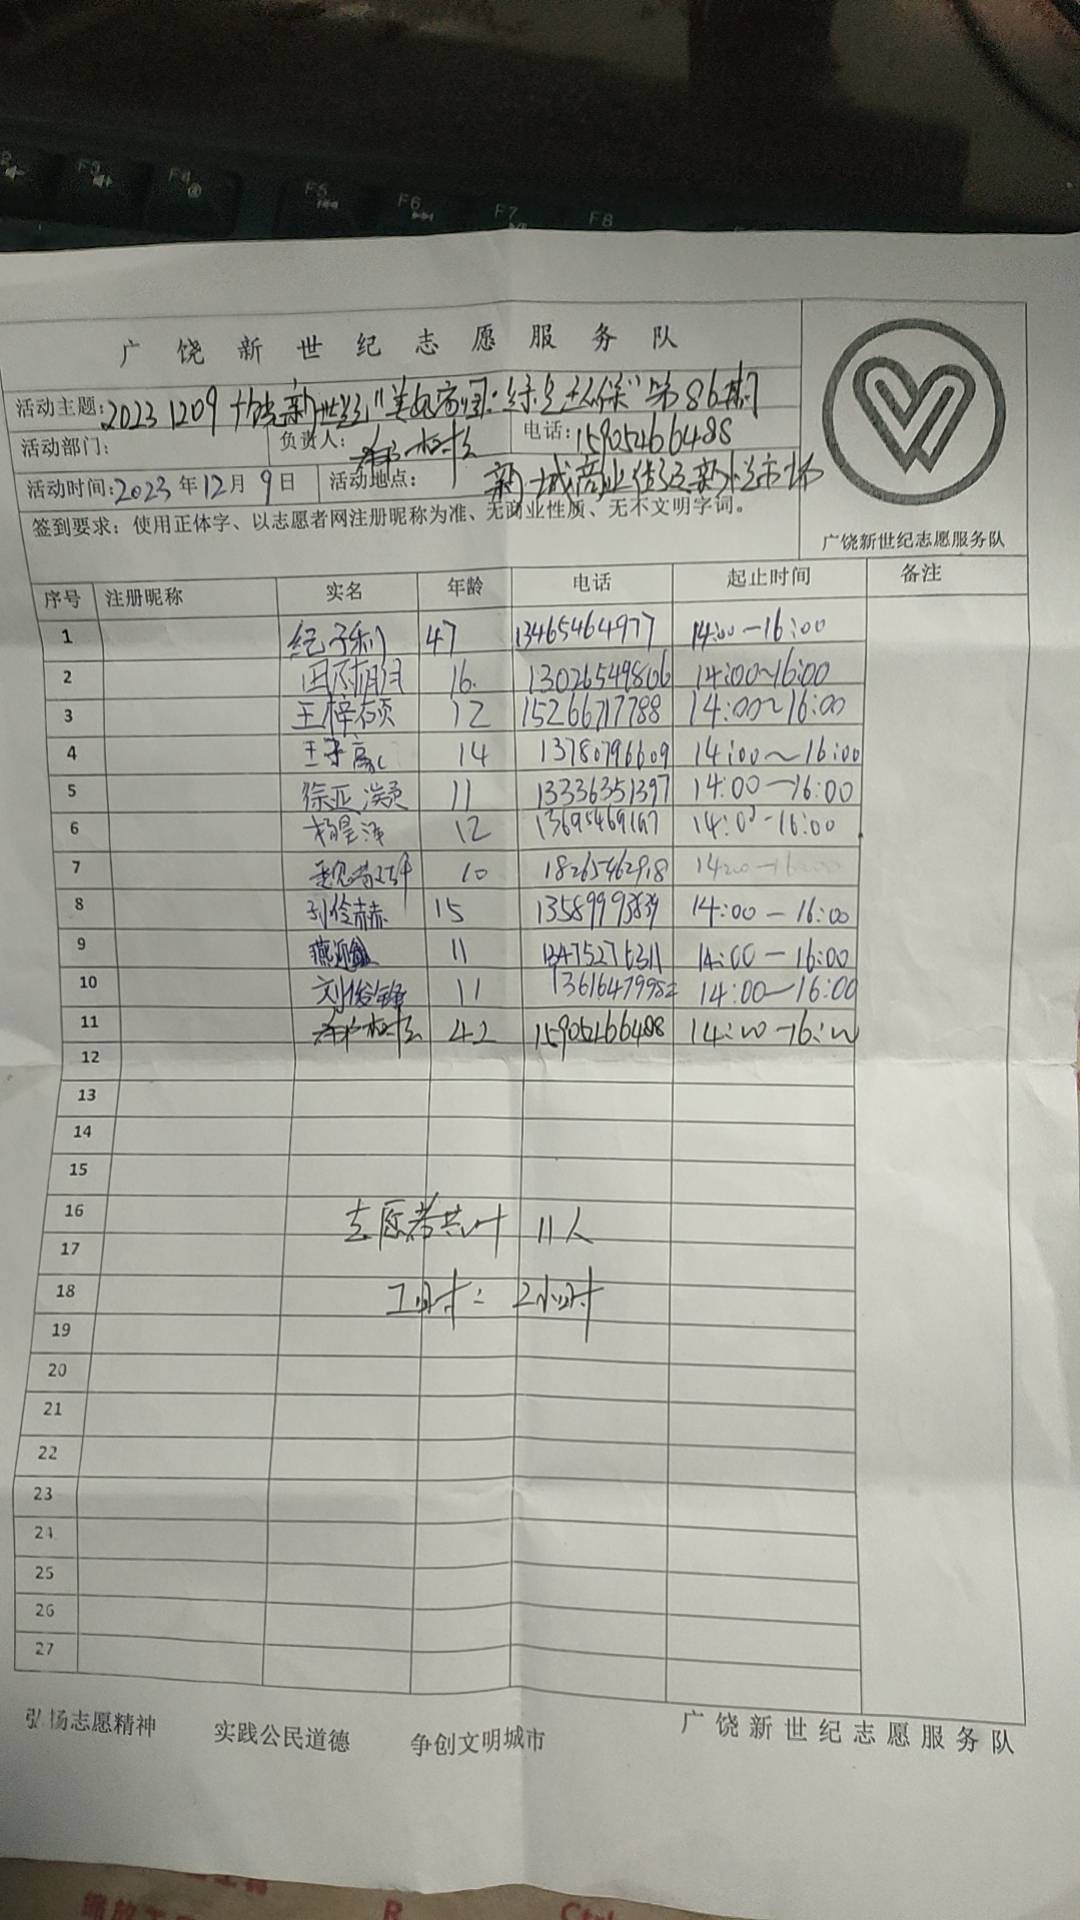 F5
F6
F7
F8
广饶新世纪志愿服务队
活动主题:20231209广饶新世纪"美好家园·绿色环保"第86期
活动部门: 负责人: 电话:15905466488
活动时间:2023年12月9日 活动地点: 新城商业街
签到要求: 使用正体字、以志愿者网注册昵称为准、无商业性质、无不文明字词。
广饶新世纪志愿服务队
序号 注册昵称 实名 年龄 电话 起止时间 备注
1 纪子利 47 13465464977 14:00-16:00
2 田雨明月 16. 13026549806 14:00~16:00
3 王梓硕 12 15266717788 14:00~16:00
4 王子赢 14 13780796609 14:00~16:00
5 徐亚灏 11 13336351397 14:00-16:00
6 杨昊泽 12 13695469167 14:00-16:00
7 10 18265462918 14:00-16:00
8 孙俊赫 15 13589993839 14:00-16:00
9 11 13475276311 14:00-16:00
10 刘俊锋 11 13616479982 14:00-16:00
11 42 15905466488 14:00-16:00
12
13
14
15
16 志愿者共计 11人
17
18 工时: 2小时
19
20
21
22
23
24
25
26
27
弘扬志愿精神 实践公民道德 争创文明城市 广饶新世纪志愿服务队
R
Ctrl